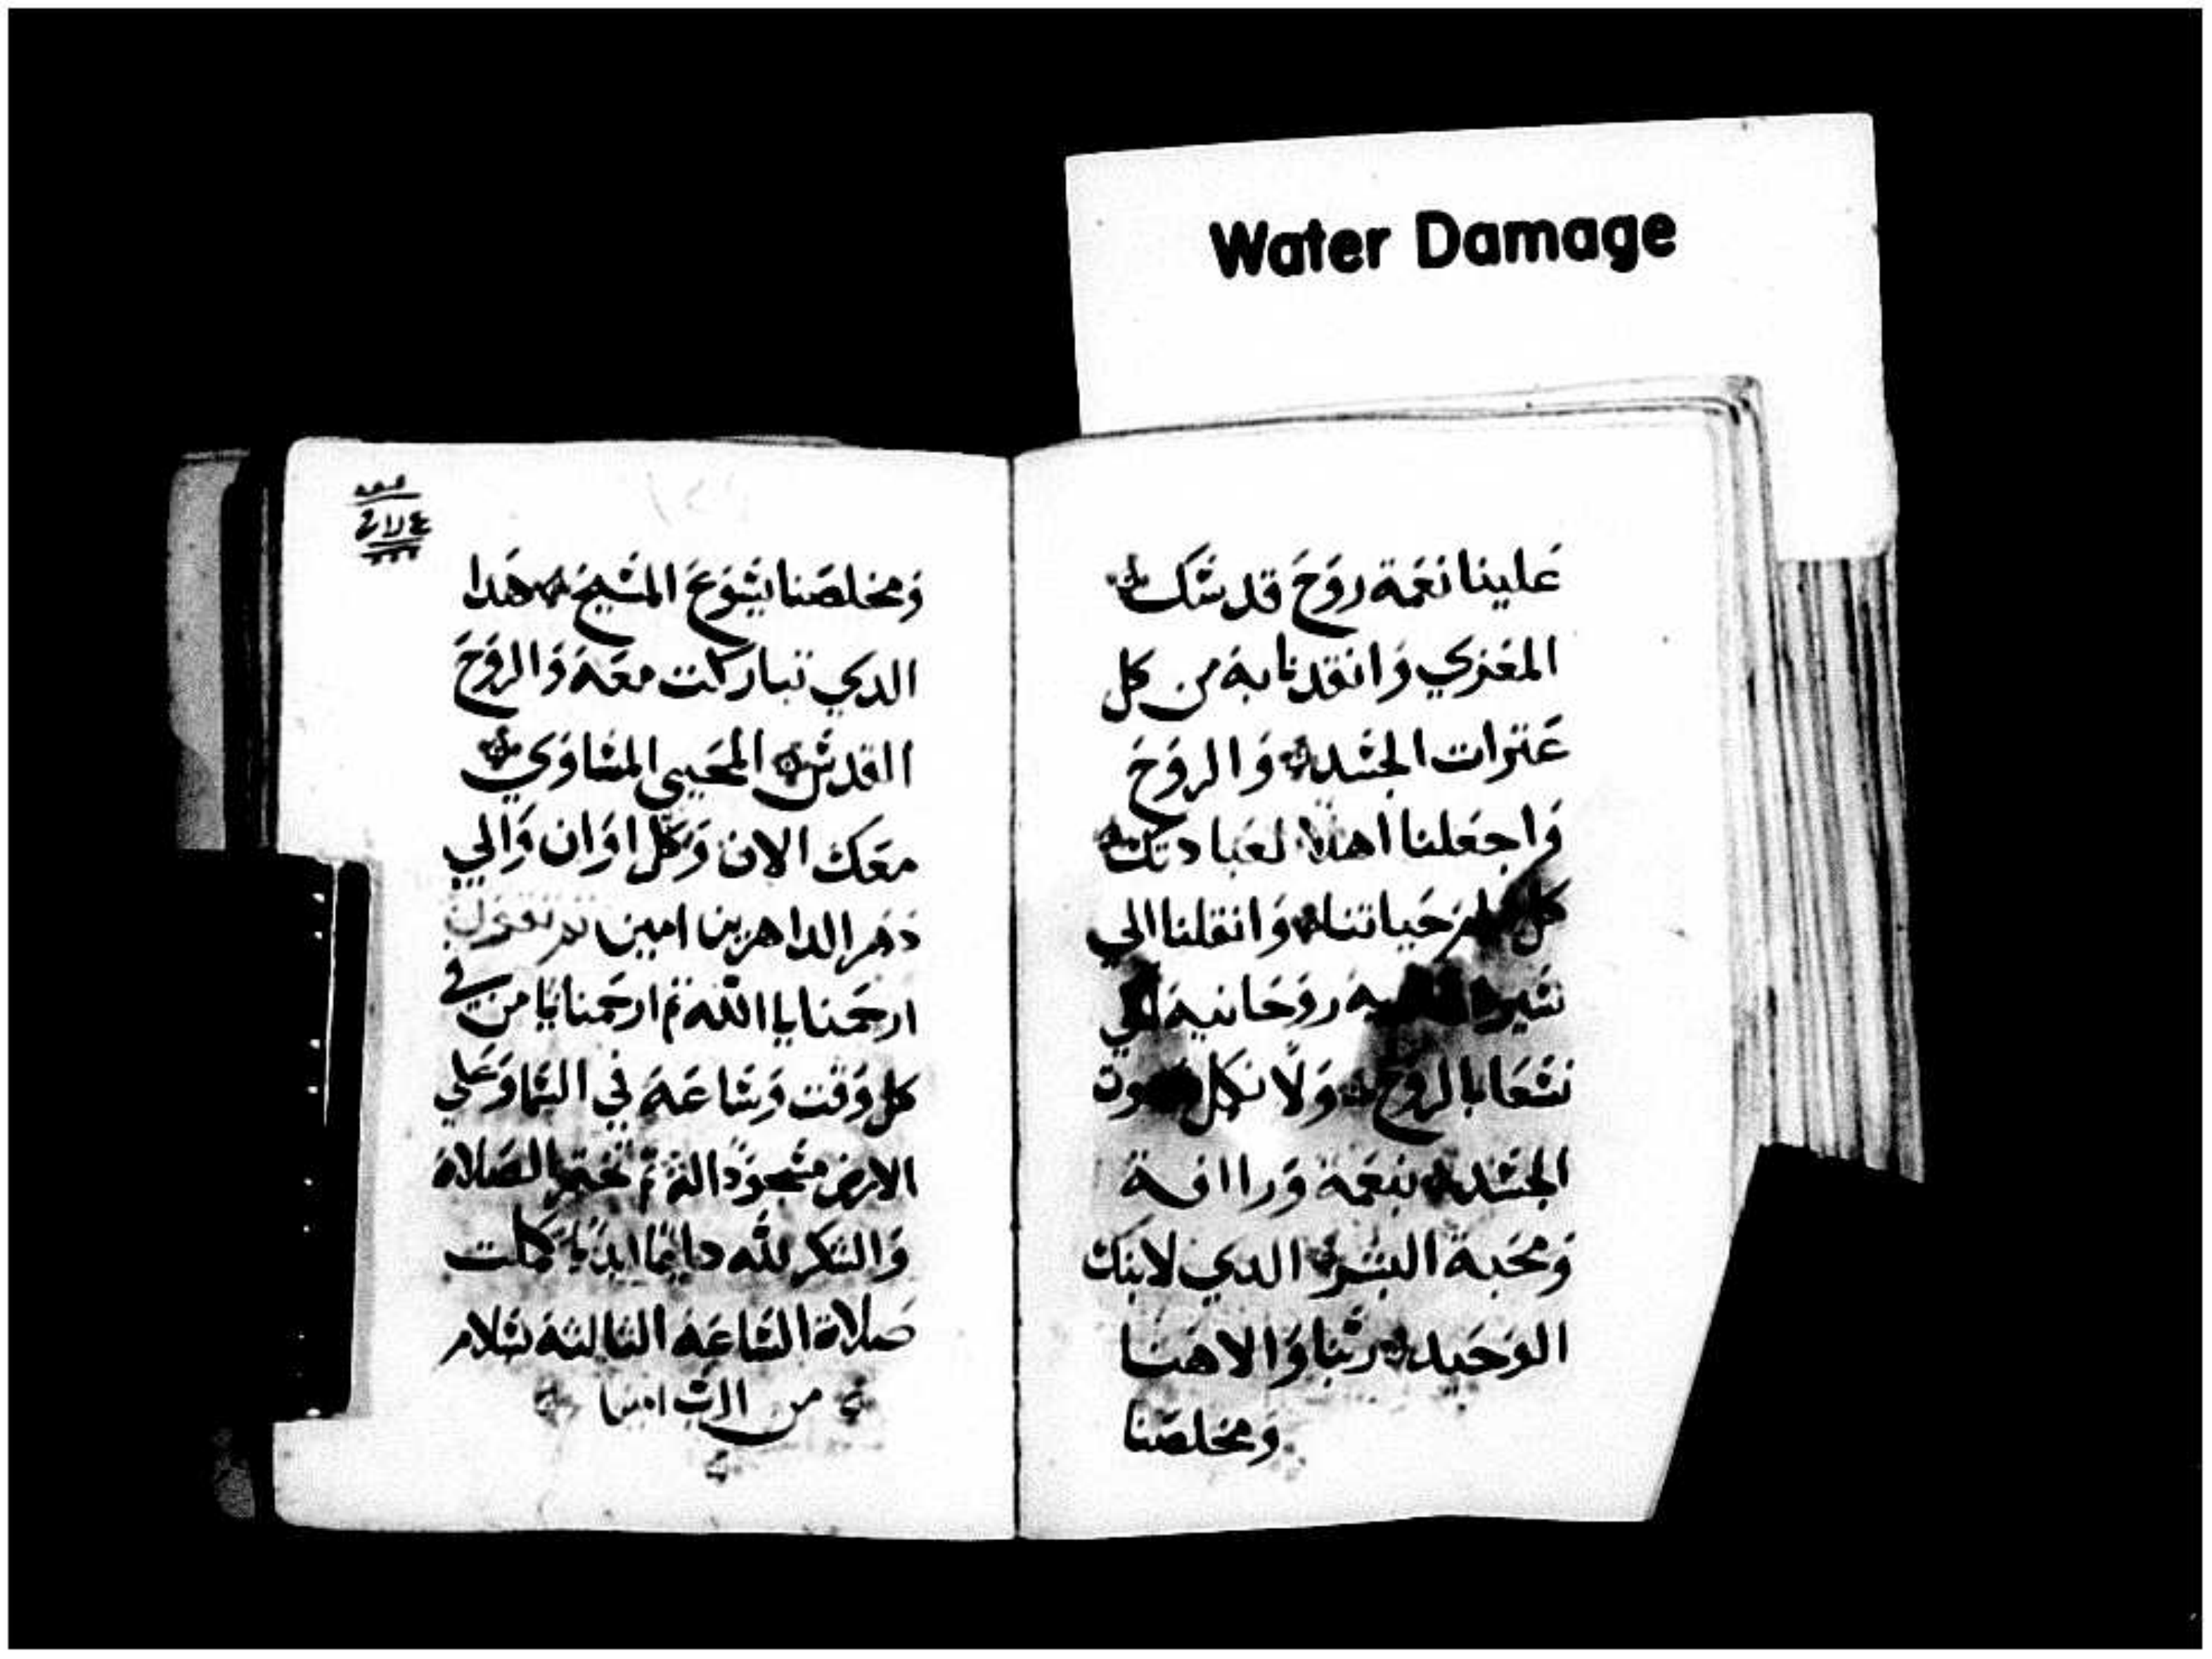 Water Damage
علينا نعمة روح قدسك
المعزي وانقدنا به من كل
عترات الجسد والروح
واجعلنا اهلا لعبادتك
كل حياتنا وانقلنا الي
سيرة روحانية لكي
نسعا بالروح ولا نكل
الجسد بنعمة وراافة
ومحبة البشر الدي لابنك
الوحيد ربنا والاهنا
ومخلصنا
ومخلصنا يسوع المسيح هدا
الدي تباركت معه والروح
القدس المحيي المساوي
معك الان وكل اوان والي
دهر الداهرين امين تم تقول
ارحمنا يا الله تم ارحمنا يا من في
كل وقت وساعة في السما وعلي
الارض مسجود اله تم تختم الصلاة
والشكر لله دايما ابديا كملت
صلاة الساعة التالتة بسلام
من الرب امين